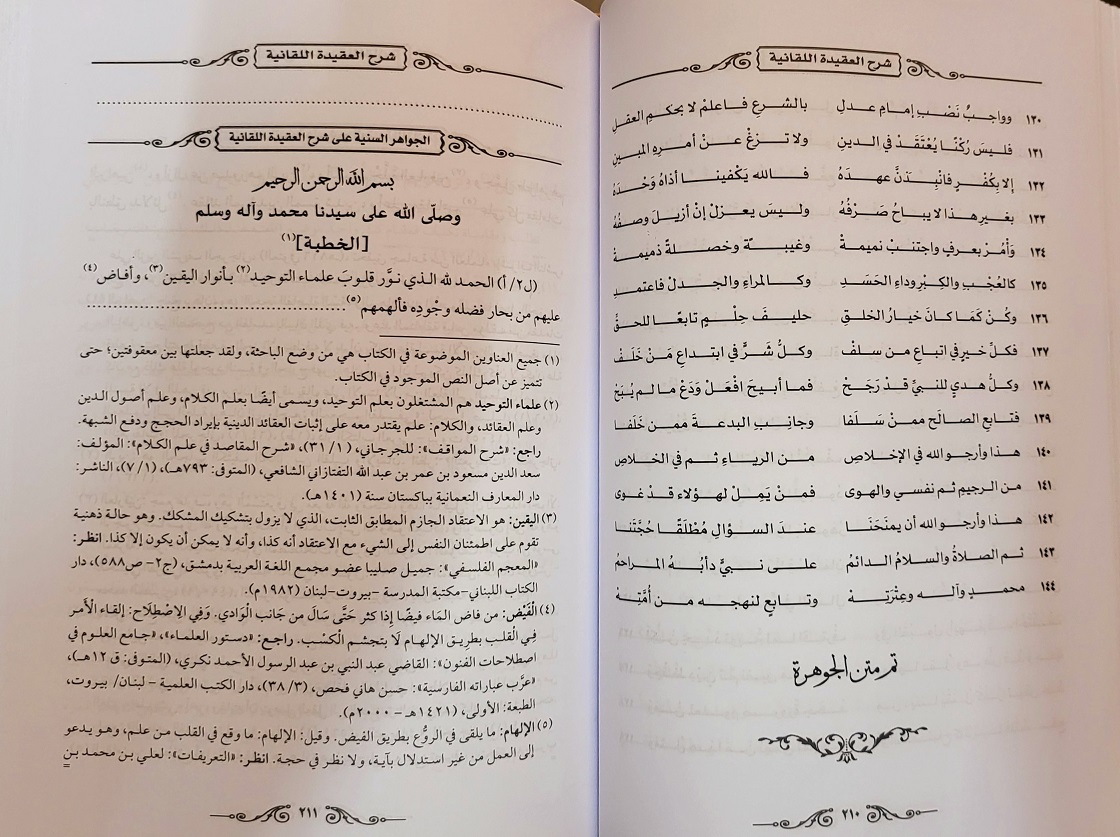 شرح العقيدة اللقانية
١٣٠ وواجبٌ نَصْبِ إمامِ عدلِ بالشرعِ فاعلمْ لا بحكمِ العقلِ
١٣١ فليسَ رُكْنًا يُعْتَقَدْ في الدينِ ولا تزغْ عنْ أمرِهِ المبينِ
١٣٢ إلا بِكُفْرٍ فانْبِذَنَّ عهدَهُ فالله يَكْفينا أذاهُ وَحْدَهُ
١٣٣ بغيرِ هذا لا يباحُ صَرْفُهُ وليسَ يعزلْ إنْ أزيلَ وصفُهُ
١٣٤ وَأْمُرْ بعرفٍ واجتنبْ نميمةْ وغيبةْ وخصلةً ذميمةْ
١٣٥ كالعُجْبِ والكِبْرِ وداءِ الحَسَدِ وكالمراءِ والجدلْ فاعتمدِ
١٣٦ وكُنْ كَمَا كانَ خيارُ الخلقِ حليفَ حِلْمٍ تابعًا للحقِّ
١٣٧ فكلُّ خيرٍ في اتباعِ من سلفْ وكلُّ شرٍّ في ابتداعِ مَنْ خَلَفْ
١٣٨ وكلُّ هديٍ للنبيِّ قدْ رَجَحْ فما أبيحَ افْعَلْ وَدَعْ ما لم يُبَحْ
١٣٩ فتابعِ الصالحَ ممنْ سَلَفَا وجانِبِ البدعةَ ممن خَلَفَا
١٤٠ هذا وأرجو الله في الإخلاصِ من الرياءِ ثم في الخلاصِ
١٤١ من الرجيمِ ثم نفسي والهوى فمنْ يَمِلْ لهؤلاء قدْ غوى
١٤٢ هذا وأرجو الله أن يمنَحَنَا عندَ السؤالِ مُطْلَقًا حُجَّتَنا
١٤٣ ثم الصلاةُ والسلامُ الدائمُ على نبيٍّ دأبُهُ المراحمُ
١٤٤ محمدٍ وآله وعِتْرَتِهْ وتابعٍ لنهجه من أُمَّتِهْ
تم متن الجوهرة
٢١٠
شرح العقيدة اللقانية
الجواهر السنية على شرح العقيدة اللقانية
بسم الله الرحمن الرحيم
وصلّى الله على سيدنا محمد وآله وسلم
[الخطبة](١)
(ل٢/أ) الحمد لله الذي نوَّر قلوبَ علماء التوحيد(٢) بأنوار اليقين(٣)، وأفاض(٤)
عليهم من بحار فضله وجُودِه فألهمهم(٥)
(١) جميع العناوين الموضوعة في الكتاب هي من وضع الباحثة، ولقد جعلتها بين معقوفتين؛ حتى
تتميز عن أصل النص الموجود في الكتاب.
(٢) علماء التوحيد هم المشتغلون بعلم التوحيد، ويسمى أيضًا بعلم الكلام، وعلم أصول الدين
وعلم العقائد، والكلام: علم يقتدر معه على إثبات العقائد الدينية بإيراد الحجج ودفع الشبهة.
راجع: «شرح المواقف»: للجرجاني، (١/ ٣١)، «شرح المقاصد في علم الكلام»: المؤلف:
سعد الدين مسعود بن عمر بن عبد الله التفتازاني الشافعي، (المتوفى: ٧٩٣هـ)، (١/ ٧)، الناشر:
دار المعارف النعمانية بباكستان سنة (١٤٠١هـ).
(٣) اليقين: هو الاعتقاد الجازم المطابق الثابت، الذي لا يزول بتشكيك المشكك. وهو حالة ذهنية
تقوم على اطمئنان النفس إلى الشيء مع الاعتقاد أنه كذا، وأنه لا يمكن أن يكون إلا كذا. انظر:
«المعجم الفلسفي»: جميل صليبا عضو مجمع اللغة العربية بدمشق، (ج٢- ص٥٨٨)، دار
الكتاب اللبناني-مكتبة المدرسة -بيروت-لبنان (١٩٨٢م).
(٤) الْفَيْض: من فاض المَاء فيضًا إِذا كثر حَتَّى سَالَ من جَانب الْوَادي. وَفِي الِاصْطِلَاح: إلقاء الْأَمر
فِي الْقلب بطرِيق الإلهام لَا بتجشم الْكسْب. راجع: «دستور العلماء»، «جامع العلوم في
اصطلاحات الفنون»: القاضي عبد النبي بن عبد الرسول الأحمد نكري، (المتوفى: ق ١٢هـ)،
«عرَّب عباراته الفارسية»: حسن هاني فحص، (٣/ ٣٨)، دار الكتب العلمية - لبنان/ بيروت،
الطبعة: الأولى، (١٤٢١هـ - ٢٠٠٠م).
(٥) الإلهام: ما يلقى في الروُّع بطريق الفيض. وقيل: الإلهام: ما وقع في القلب من علم، وهو يدعو
إلى العمل من غير استدلال بآية، ولا نظر في حجة. انظر: «التعريفات»: لعلي بن محمد بن
٢١١